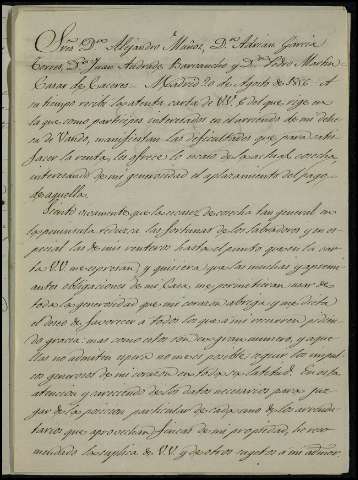 Sres. Dn. Alejandro Muñoz, Dn. Adrian Garcia
Torres Dn. Juan Andrade Barrancho y Dn. Pedro Martin
Casar de Caceres = Madrid 20 de Agosto de 1856 = A
su tiempo recibí la atenta carta de V.V. 6 del que rige en
la que como participes interesados en el arriendo de mi dehesa
de Vando, manifiestan las dificultades que para satis
facer la renta, les ofrece lo escaso de la actual cosecha,
interesando de mi generosidad el aplazamiento del pago
de aquella.
Siento vivamente que la escasez de cosecha tan general en
la peninsula reduzca las fortunas de los labradores y en es
pecial las de mis renteros hasta el punto que en la car
ta V.V. me espresan, y quisiera que las muchas y apremi
antes obligaciones de mi Casa me permitieran usar de
toda la generosidad que mi corazon abriga y me dicta
el deseo de favorecer a todos los que a mi recurren pidien
do gracia: mas como estos son en gran numero, y aque
llas no admiten espera no me es posible seguir los impul
sos generosos de mi corazon en toda su latitud. En esta
atencion y careciendo de los datos necesarios para juz
gar de la posicion particular de cada uno de los arrenda
tarios que aprovechan fincas de mi propiedad, he reco
mendado la suplica de V.V. y de otros sujetos a mi admor.